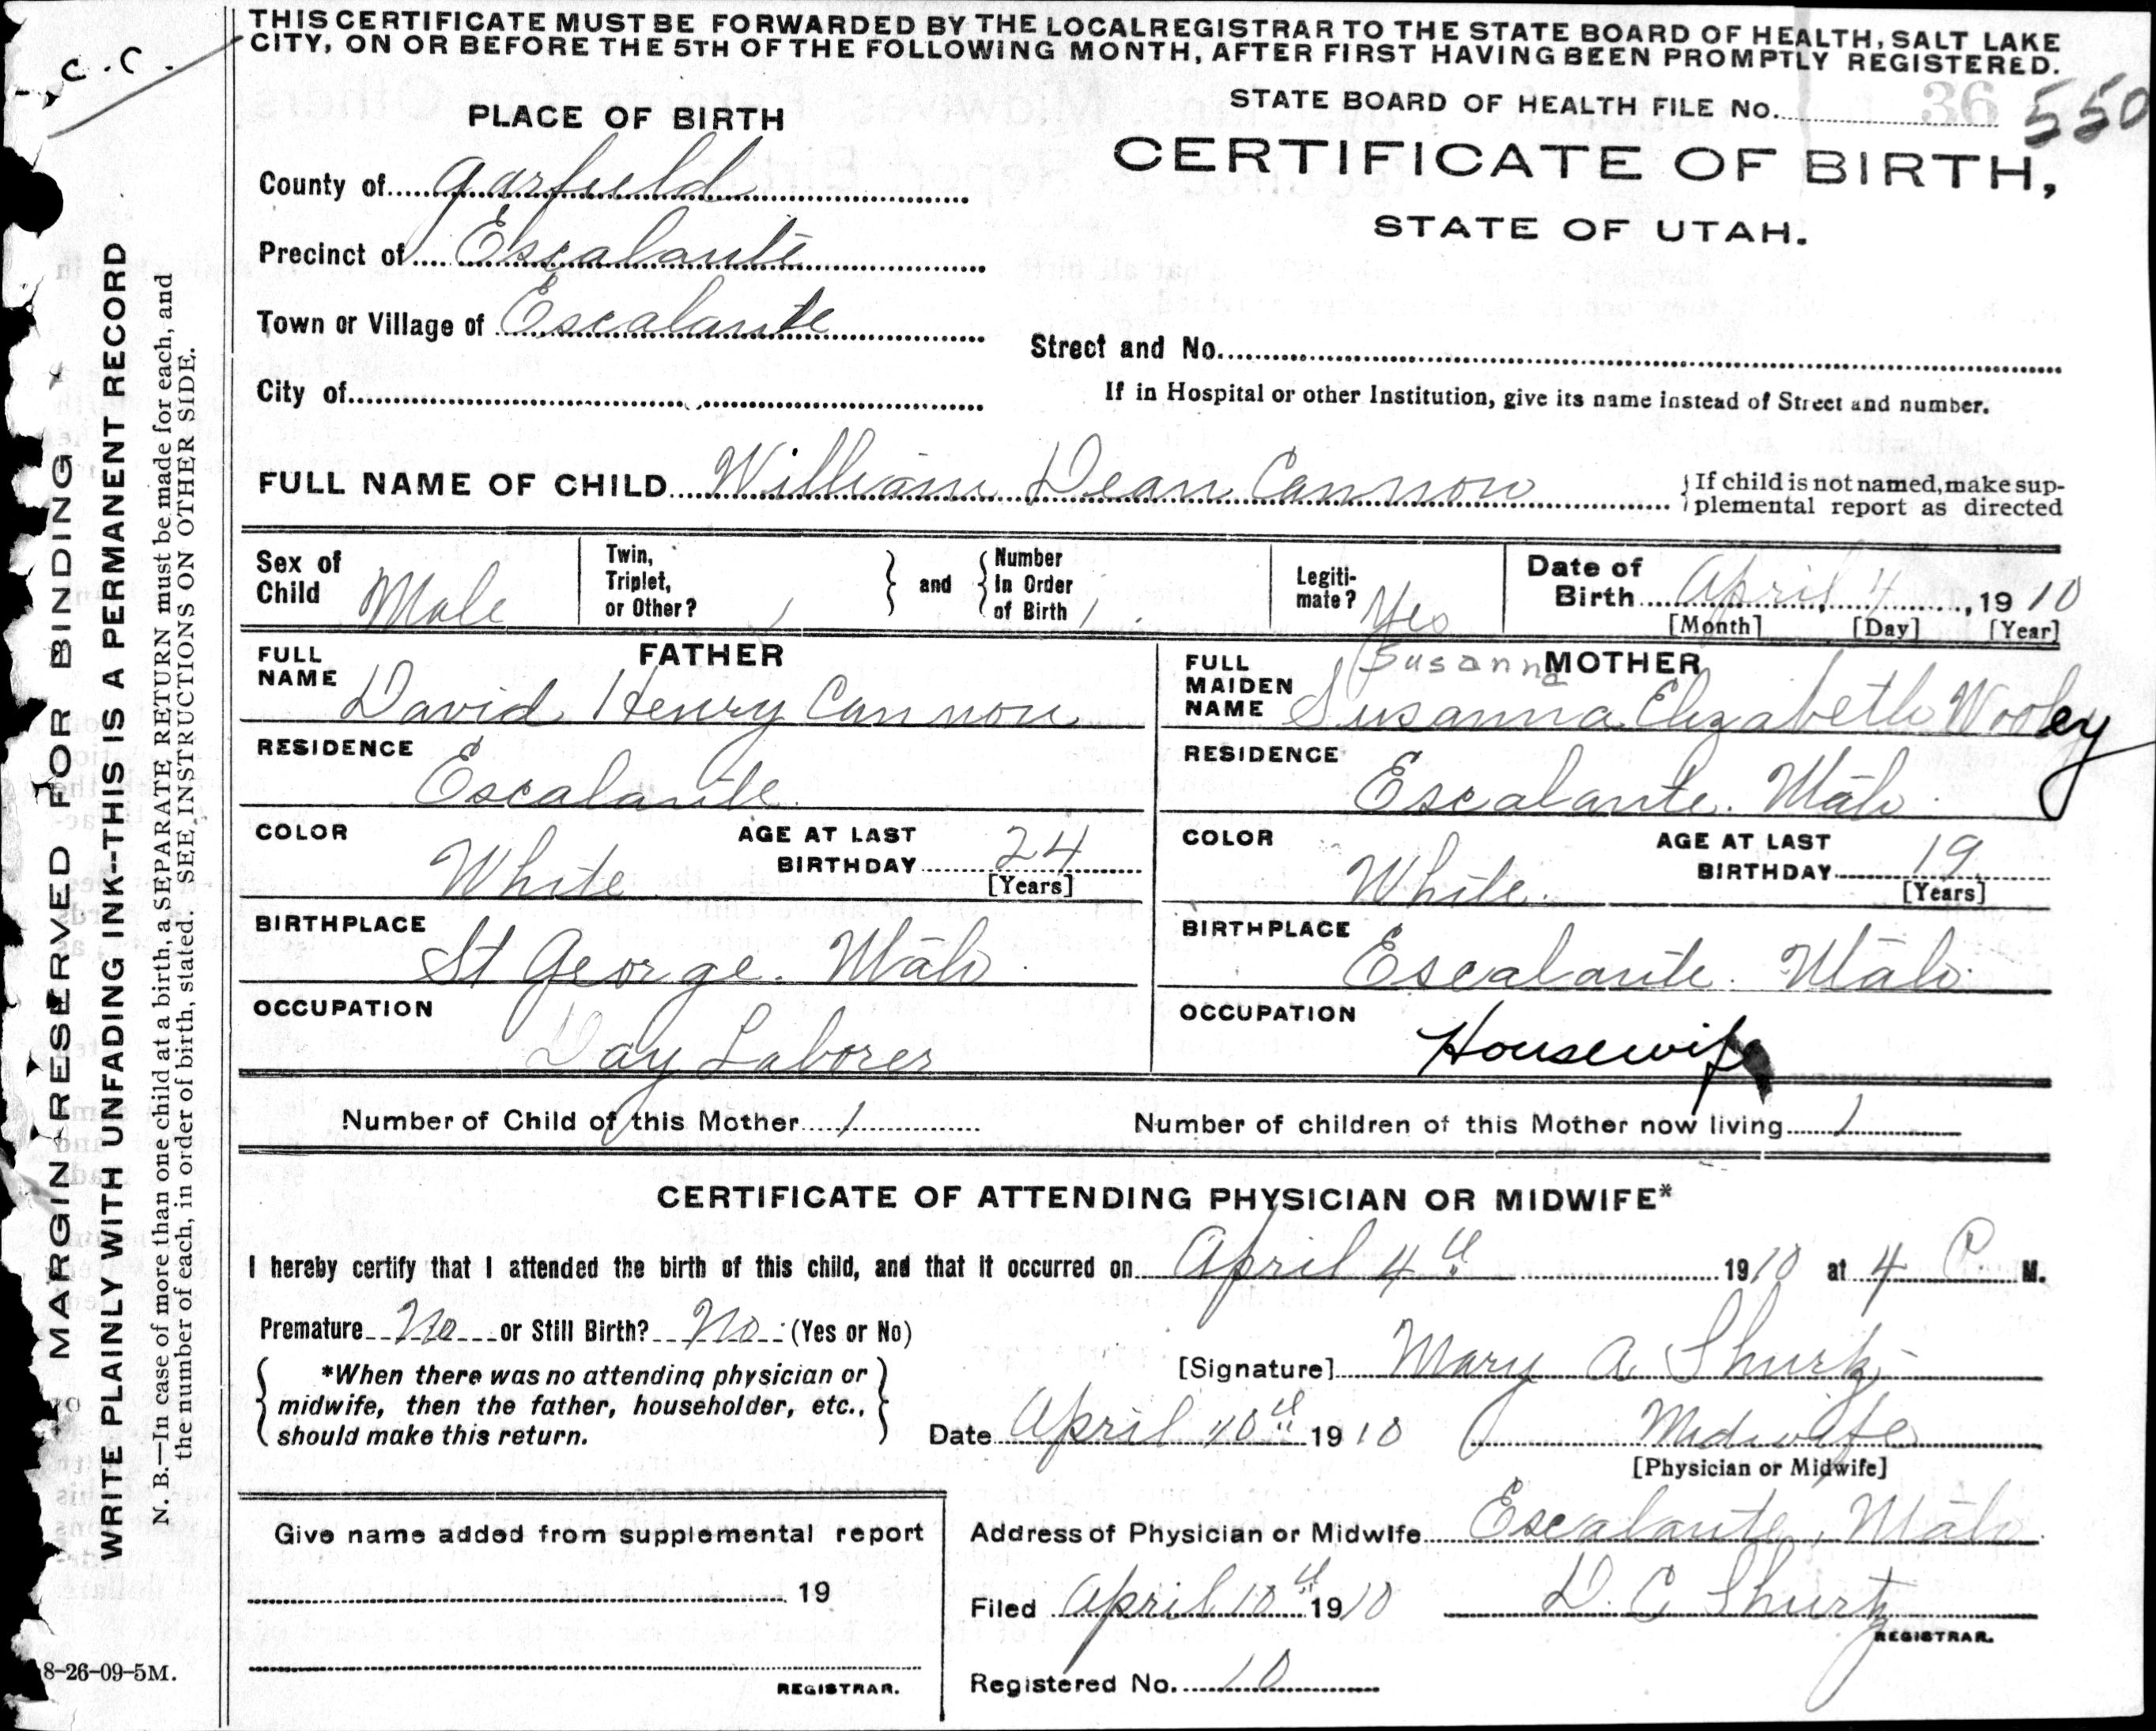 THIS CERTIFICATE MUST BE FORWARDED BY THE LOCALREGISTRAR TO THE STATE BOARD OF HEALTH, SALT LAKE
CITY, ON OR BEFORE THE 5TH OF THE FOLLOWING MONTH, AFTER FIRST HAVING BEEN PROMPTLY REGISTERED.
C.C.
STATE BOARD OF HEALTH FILE No. 36 550
PLACE OF BIRTH
CERTIFICATE OF BIRTH,
STATE OF UTAH.
County of Garfield
Precinct of Escalante
Town or Village of Escalante
Street and No.
City of
If in Hospital or other Institution, give its name instead of Street and number.
FULL NAME OF CHILD William Dean Cannon
If child is not named, make sup-
plemental report as directed
Sex of Child Male
Twin, Triplet, or Other? 1
and
Number In Order of Birth 1
Legiti-mate? Yes
Date of Birth April 4, 1910
[Month] [Day] [Year]
FATHER
FULL NAME David Henry Cannon
RESIDENCE Escalante
COLOR White
AGE AT LAST BIRTHDAY 24
[Years]
BIRTHPLACE St George. Utah
OCCUPATION Day Laborer
MOTHER
Susanna
FULL MAIDEN NAME Susanna Elizabeth Wooley
RESIDENCE Escalante. Utah
COLOR White
AGE AT LAST BIRTHDAY 19
[Years]
BIRTHPLACE Escalante. Utah
OCCUPATION Housewife
Number of Child of this Mother 1
Number of children of this Mother now living 1
CERTIFICATE OF ATTENDING PHYSICIAN OR MIDWIFE*
I hereby certify that I attended the birth of this child, and that it occurred on April 4th 1910 at 4 P. M.
Premature No or Still Birth? No (Yes or No)
*When there was no attending physician or
midwife, then the father, householder, etc.,
should make this return.
[Signature] Mary A Shurtz
Date April 10th 1910
Midwife
[Physician or Midwife]
Give name added from supplemental report
19
REGISTRAR.
Address of Physician or Midwife Escalante, Utah
Filed April 10th 1910
D. C Shurtz
REGISTRAR.
Registered No. 10
MARGIN RESERVED FOR BINDING
WRITE PLAINLY WITH UNFADING INK--THIS IS A PERMANENT RECORD
N. B.—In case of more than one child at a birth, a SEPARATE RETURN must be made for each, and
the number of each, in order of birth, stated. SEE INSTRUCTIONS ON OTHER SIDE.
8-26-09-5M.